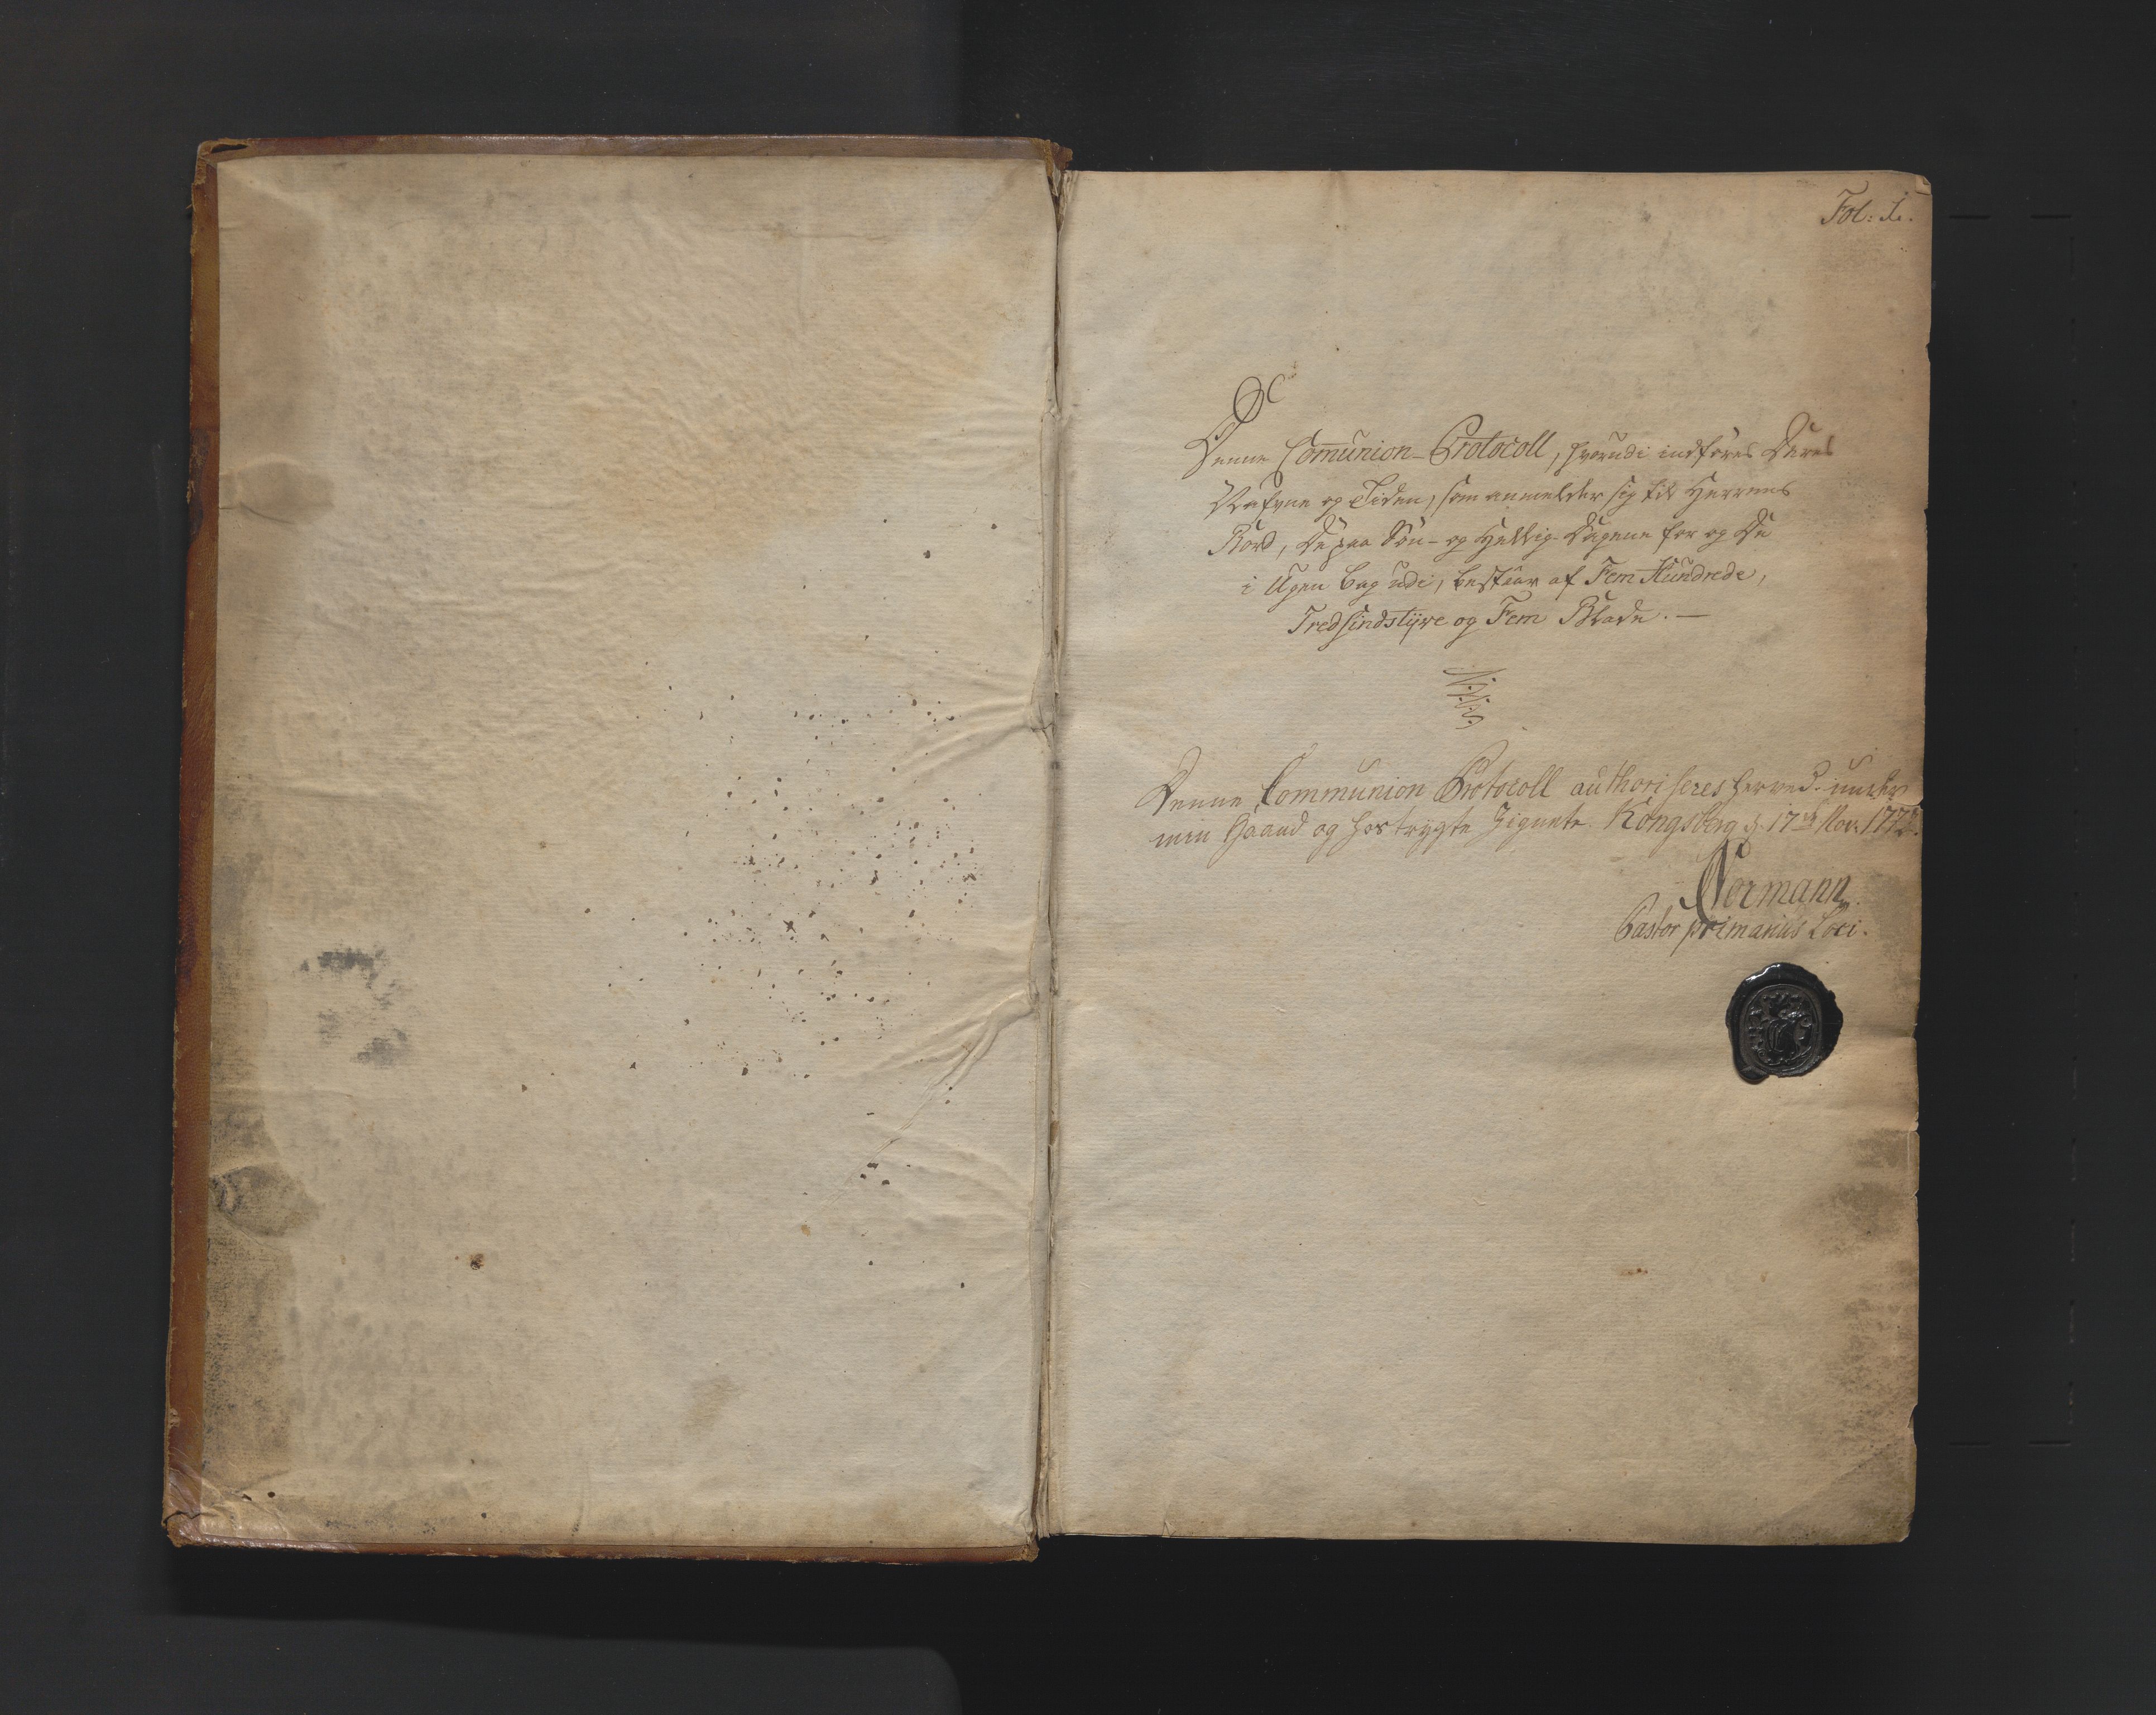 Fol: 1.
Denne Co̅munion-Protocoll, hvorudi indføres Deres
Nafvne og Tiden, som anmelder sig til Herrens
Bord, De paa Søn- og Hellig-Dagene for og De
i Ugen bag udi, bestaar af Fem Hundrede,
Tredsindstyve og Fem Blade. —
Denne Communion Protocoll authoriseres herved under
min Haand og hostrygte Zignete Kongsberg d. 17de Nov: 1772.
Normann
Pastor primarius Loci.